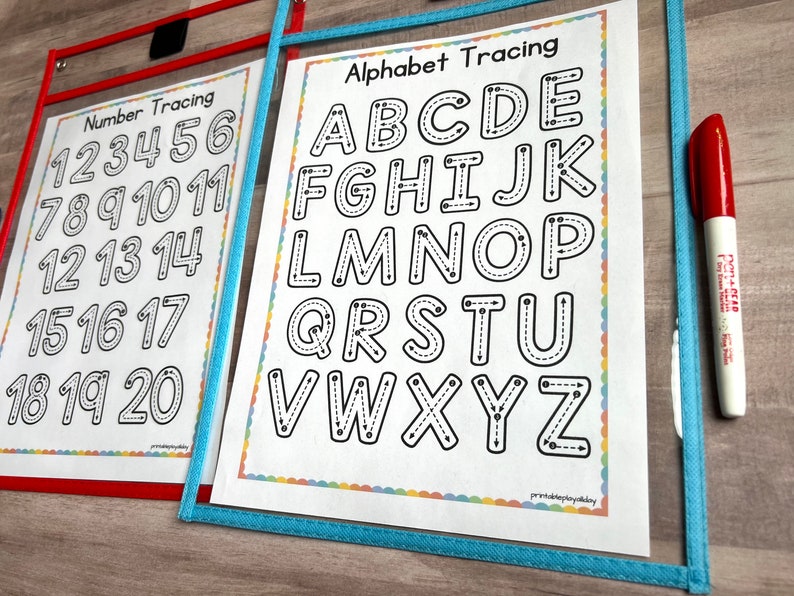 Number Tracing
1 2 3 4 5 6
7 8 9 10 11
12 13 14
15 16 17
18 19 20
printableplayallday
Alphabet Tracing
A B C D E
F G H I J K
L M N O P
Q R S T U
V W X Y Z
printableplayallday
Dry Erase Marker
Fine Point